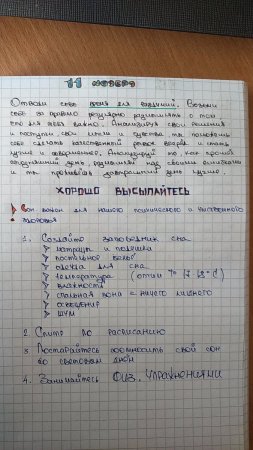 11 ноября
Отводи себе время для раздумий. Возьми
себе за правило регулярно размышлять о том
что для тебя важно. Анализируя свои решения
и поступки свои мысли и чувства ты поможешь
себе сделать качественный рывок вперёд и стать
лучше и совершеннее. Анализируй то, как прошёл
сегодняшний день, размышляй над своими ошибками
и ты проживёшь завтрашний день лучше.
ХОРОШО ВЫСЫПАЙТЕСЬ
Сон важен для нашего психического и умственного
здоровья
1. Создайте заповедник сна
матрацы и подушка
постельное бельё
одежда для сна
температура
влажность
спальная зона = ничего лишнего
освещение
шум
2. Спите по расписанию
3. Постарайтесь соотносить свой сон
со световым днём
4. Занимайтесь физ. упражнениями